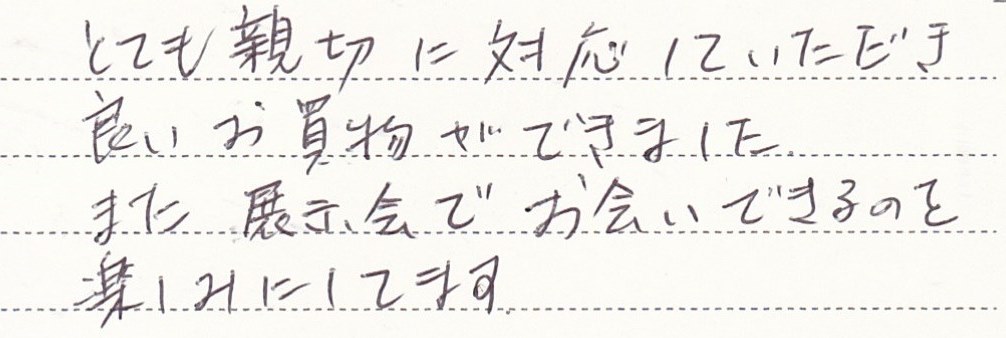 とても親切に対応していただき
良いお買物ができました.
また展示会でお会いできるのを
楽しみにしてます.